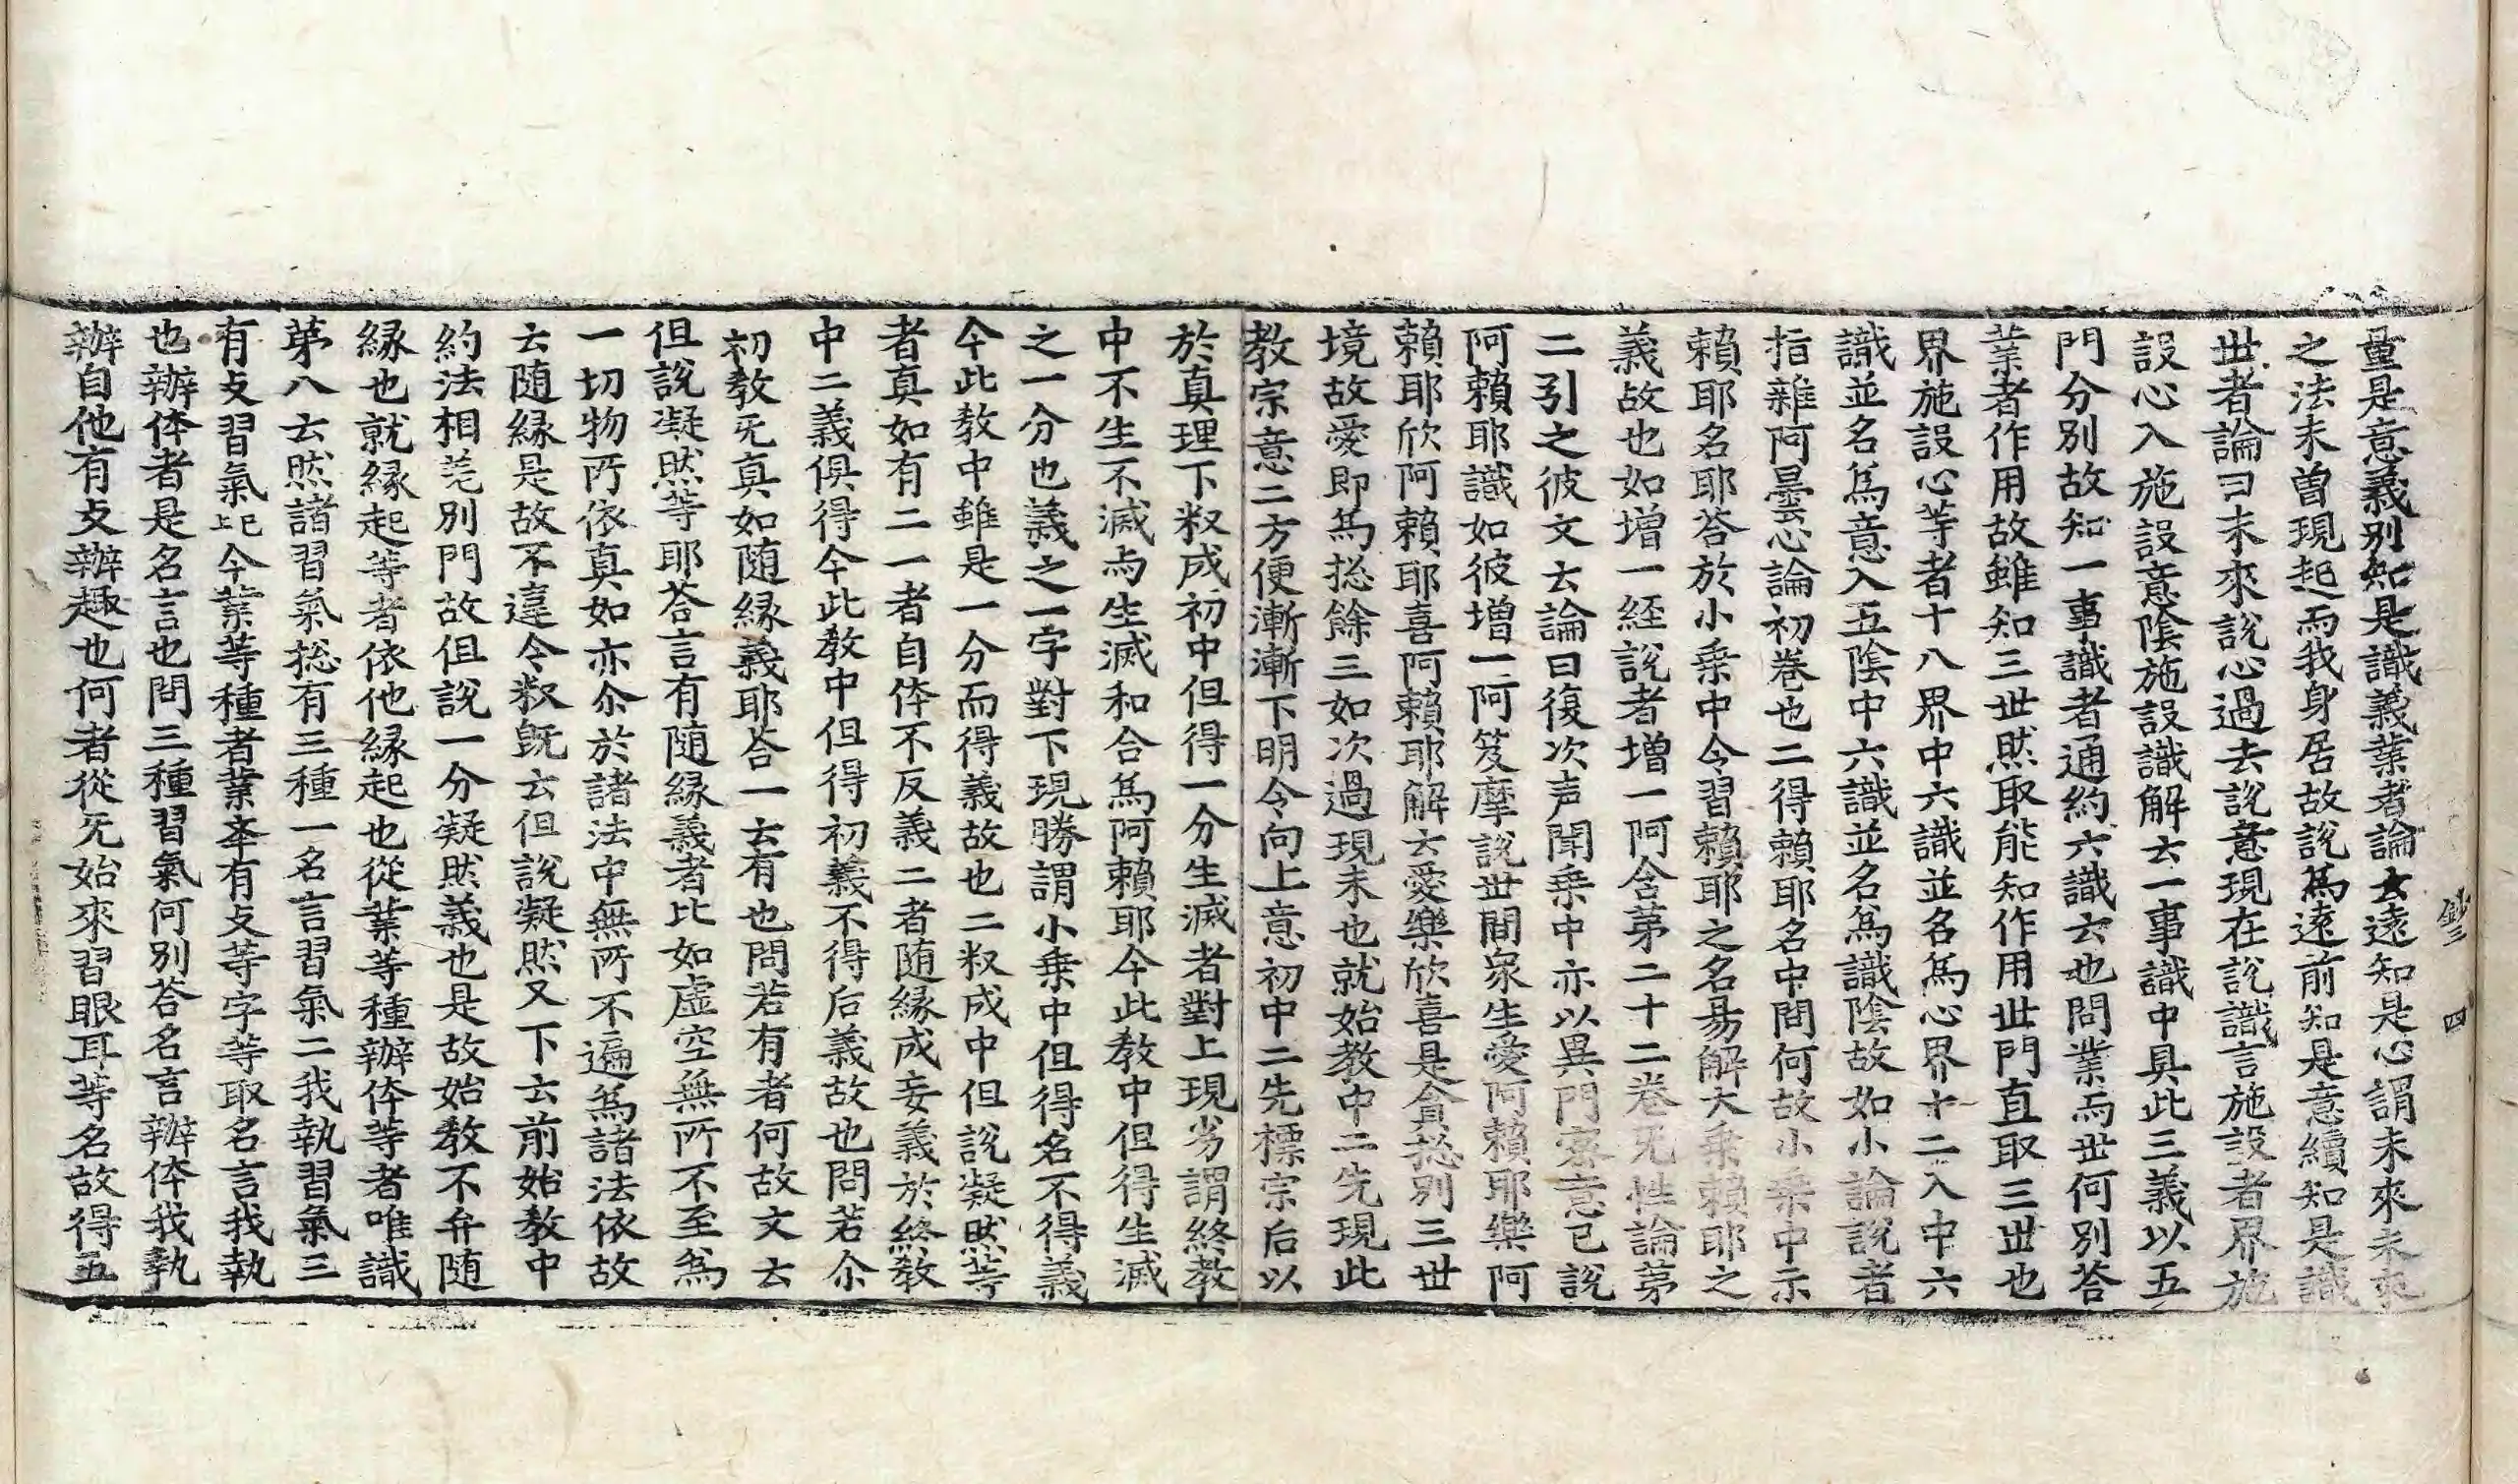 鈔三　四
量是意義別知是識義業者論玄遠知是心謂未來未來
之法未曽現起而我身居故說為遠前知是意續知是識
世者論曰未來說心過去說意現在說識言施設者界施
設心入施設意陰施設識解云一事識中具此三義以五
門分別故知一事識者通約六識云也問業而世何別荅
業者作用故雖知三世然取能知作用世門直取三世也
界施設心等者十八界中六識並名為心界十二入中六
識並名為意入五陰中六識並名為識陰故如小論說者
指雜阿曇心論初巻也二得賴耶名中問何故小乗中示
賴耶名耶荅於小乗中今習賴耶之名易解大乗賴耶之
義故也如增一経說者增一阿含第二十二巻无性論第
二引之彼文云論曰復次声聞乗中亦以異門宻意已說
阿賴耶識如彼增一阿笈摩說世間衆生愛阿賴耶樂阿
賴耶欣阿賴耶喜阿賴耶解云愛樂欣喜是貪捴別三世
境故愛即為捴餘三如次過現未也就始教中二先現此
教宗意二方便漸漸下明令向上意初中二先標宗后以
於真理下釈成初中但得一分生滅者對上現劣謂終教
中不生不滅与生滅和合為阿賴耶今此教中但得生滅
之一分也義之一字對下現勝謂小乗中但得名不得義
今此教中雖是一分而得義故也二釈成中但說凝然等
者真如有二一者自体不反義二者随縁成妄義於終教
中二義俱得今此教中但得初義不得后義故也問若尒
初教旡真如随縁義耶荅一云有也問若有者何故文云
但說凝然等耶荅言有随縁義者比如虛空無所不至為
一切物所依真如亦尒於諸法中無所不遍為諸法依故
云随縁是故不違今釈旣云但說凝然又下云前始教中
約法相差別門故但說一分凝然義也是故始教不弁随
縁也就縁起等者依他縁起也從業等種辦体等者唯識
第八云然諸習氣捴有三種一名言習氣二我執習氣三
有攴習氣已上今業等種者業牽有攴等字等取名言我執
也辦体者是名言也問三種習氣何別荅名言辦体我執
辦自他有攴辦趣也何者從旡始來習眼耳等名故得五